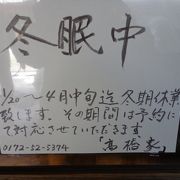 冬眠中
1/20～4月中旬迄 冬期休業
致します。その期間は予約に
て対応させていただきます
0172-52-5374 「高橋家」